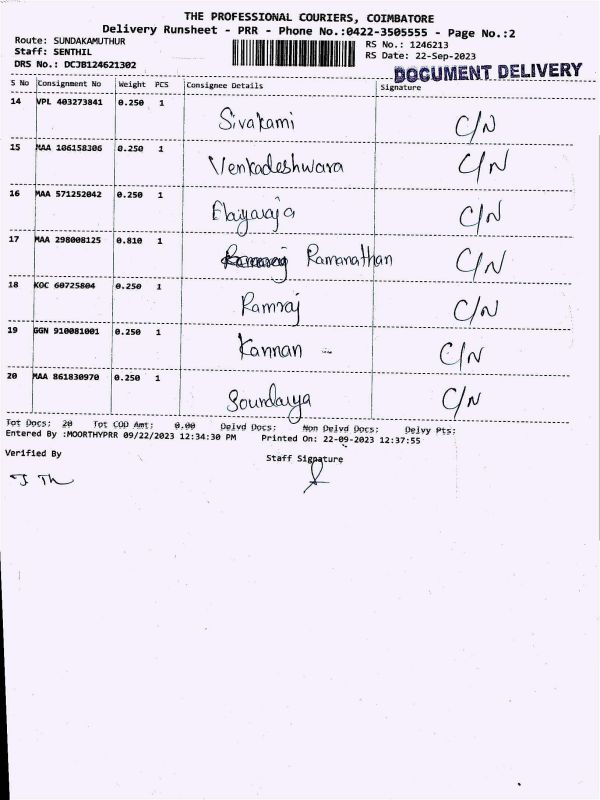 THE PROFESSIONAL COURIERS, COIMBATORE
Delivery Runsheet - PRR - Phone No.:0422-3505555 - Page No.:2
Route: SUNDAKAMUTHUR
Staff: SENTHIL
DRS No.: DCJB124621302
RS No.: 1246213
RS Date: 22-Sep-2023
DOCUMENT DELIVERY
S No Consignment No Weight PCS Consignee Details Signature
14 VPL 403273841 0.250 1 Sivakami C/N
15 MAA 106158306 0.250 1 Venkadeshwara C/N
16 MAA 571252042 0.250 1 Elayaraja C/N
17 MAA 298008125 0.810 1 Ramanathan C/N
18 KOC 60725804 0.250 1 Ramraj C/N
19 GGN 910081001 0.250 1 Kannan C/N
20 MAA 861830970 0.250 1 Soundarya C/N
Tot Docs: 20 Tot COD Amt: 0.00 Delvd Docs: Non Delvd Docs: Delvy Pts:
Entered By :MOORTHYPRR 09/22/2023 12:34:30 PM Printed On: 22-09-2023 12:37:55
Verified By
Staff Signature